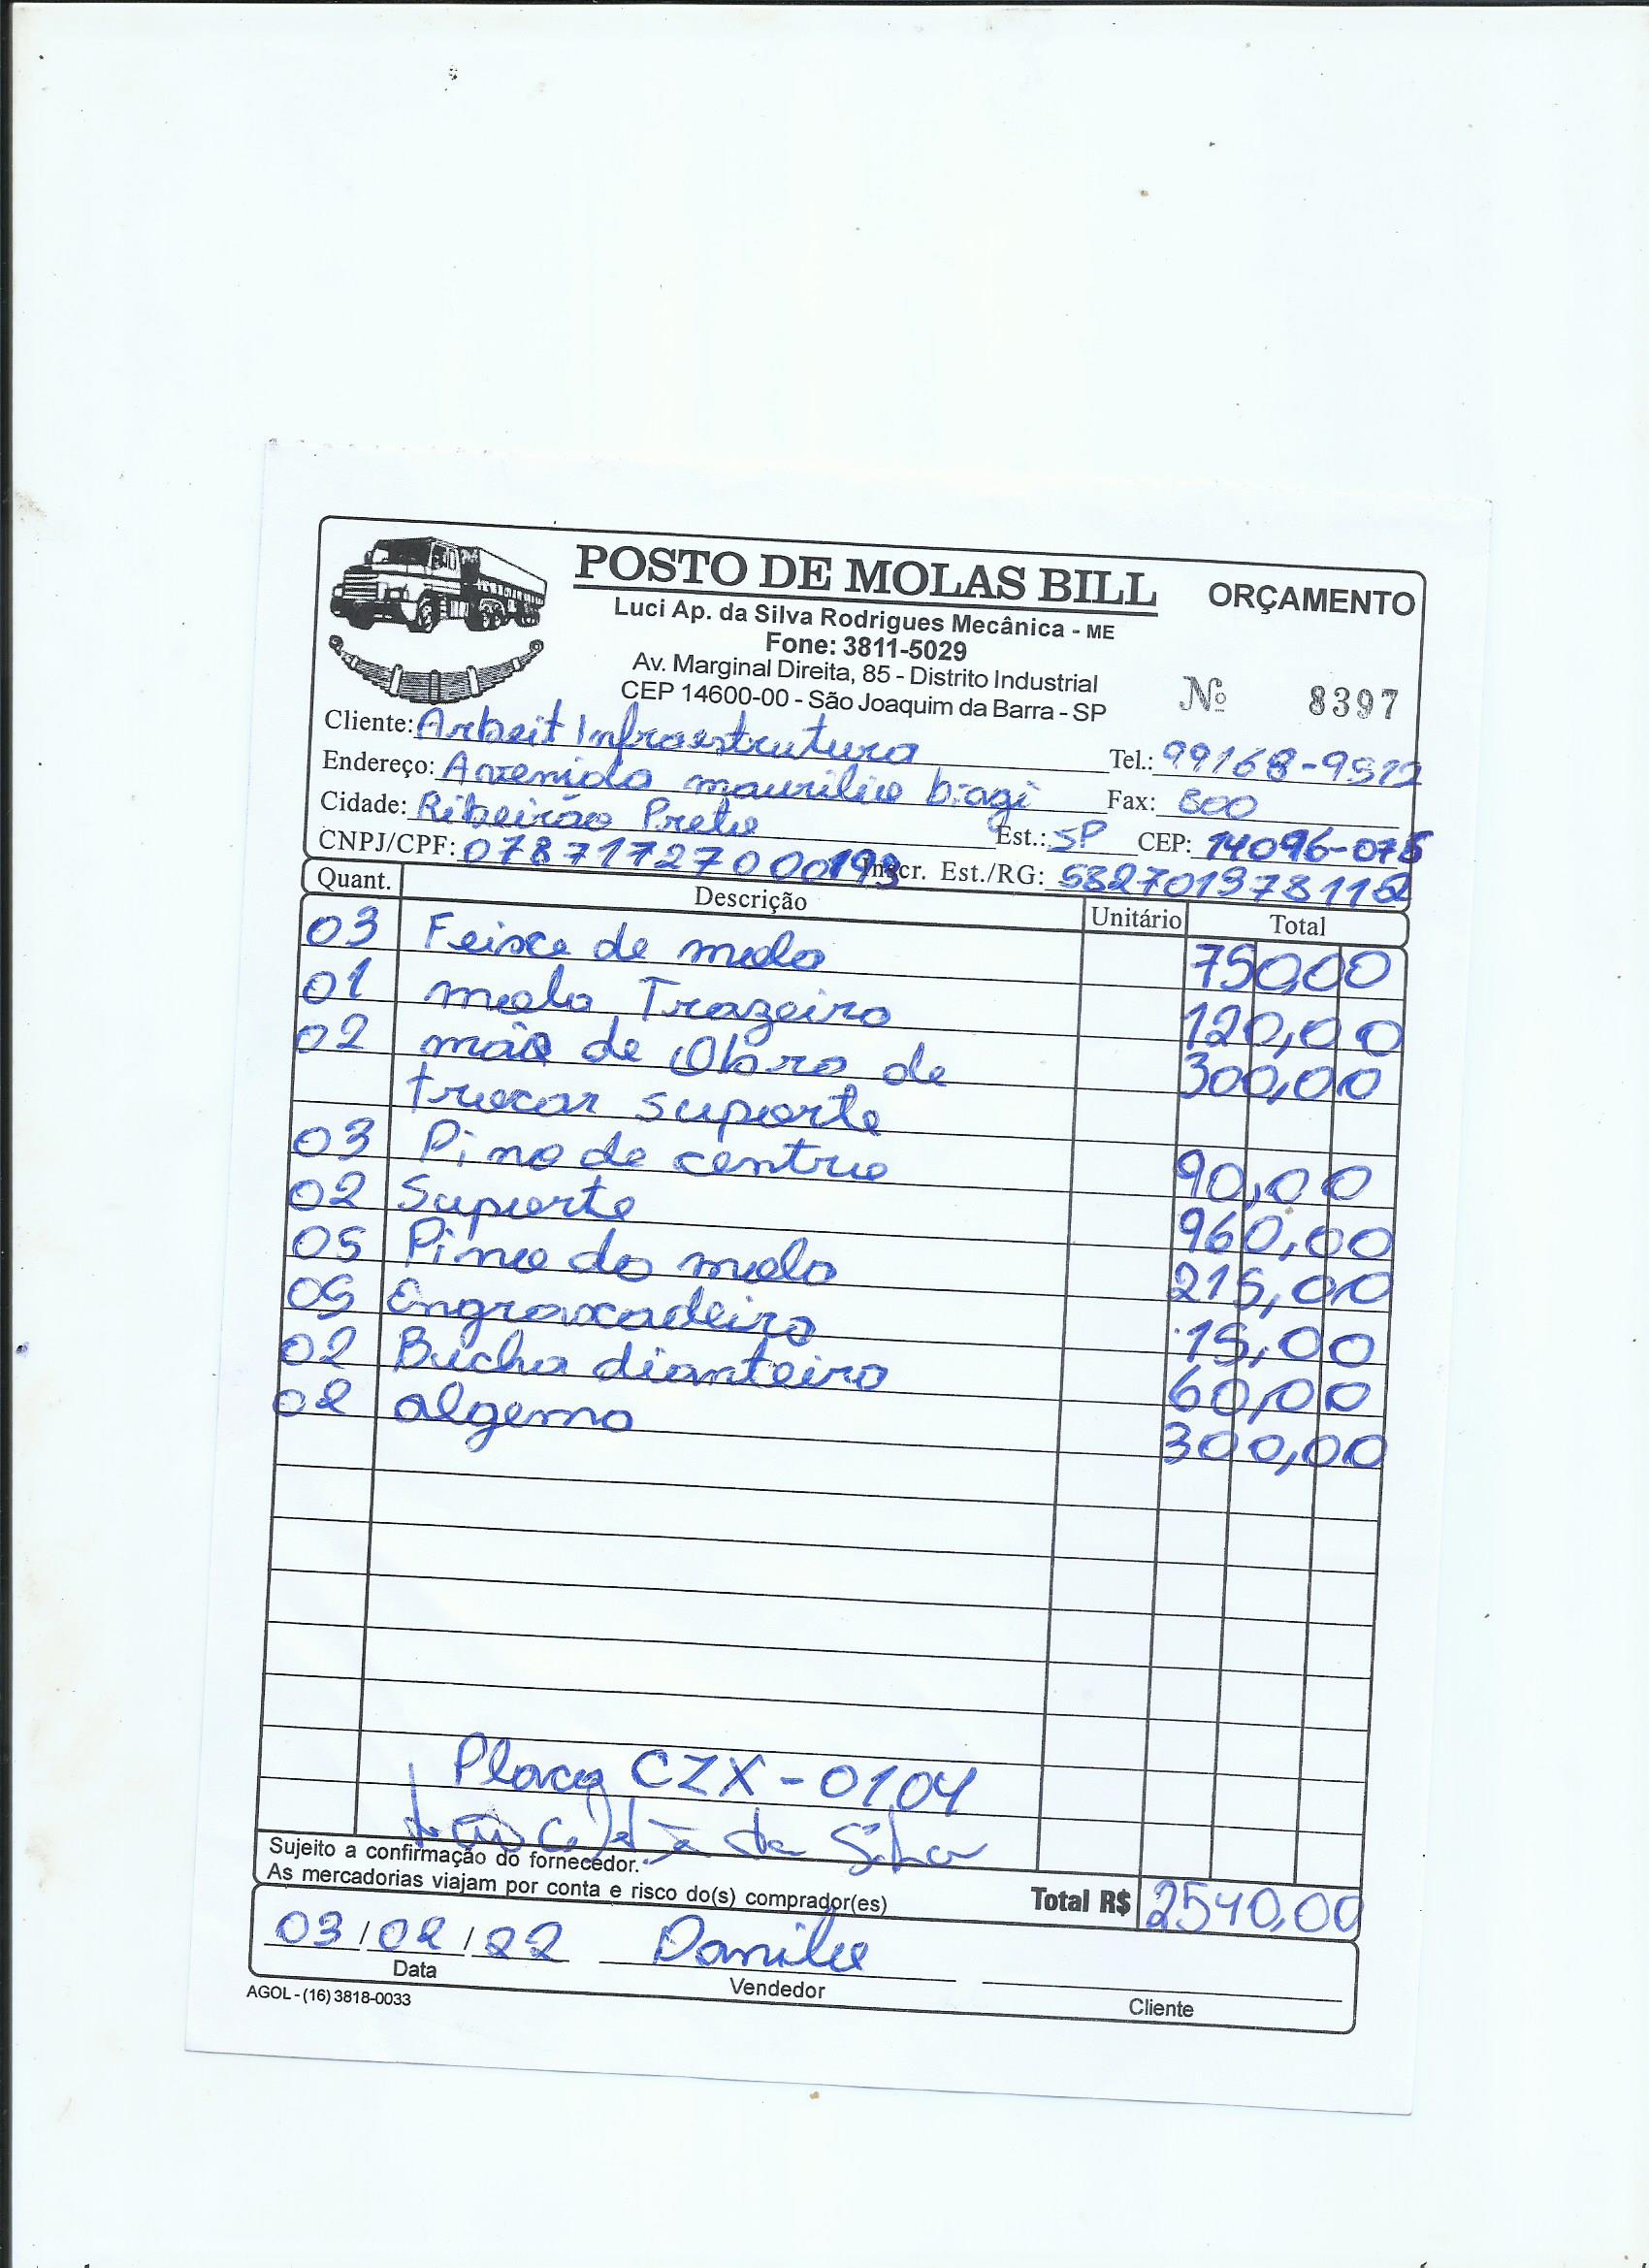 POSTO DE MOLAS BILL ORÇAMENTO
Luci Ap. da Silva Rodrigues Mecânica - ME
Fone: 3811-5029
Av. Marginal Direita, 85 - Distrito Industrial
CEP 14600-00 - São Joaquim da Barra - SP
Nº 8397
Cliente: Arbeit Infraestrutura Tel.: 99168-9512
Endereço: Avenida maurilio biagi Fax: 800
Cidade: Ribeirão Preto Est.: SP CEP: 14096-075
CNPJ/CPF: 07871727000193 Inscr. Est./RG: 582701378112
Quant. Descrição Unitário Total
03 Feixe de mola 750,00
01 mola Trazeira 120,00
02 mão de Obra de 300,00
trocar suporte
03 Pino de centro 90,00
02 Suporte 960,00
05 Pino da mola 215,00
05 Engraxadeira 15,00
02 Bucha dianteira 60,00
02 algema 300,00
Placa CZX-0104
da Silva
Sujeito a confirmação do fornecedor.
As mercadorias viajam por conta e risco do(s) comprador(es) Total R$ 2540,00
03/02/22 Danilo
Data Vendedor Cliente
AGOL - (16) 3818-0033